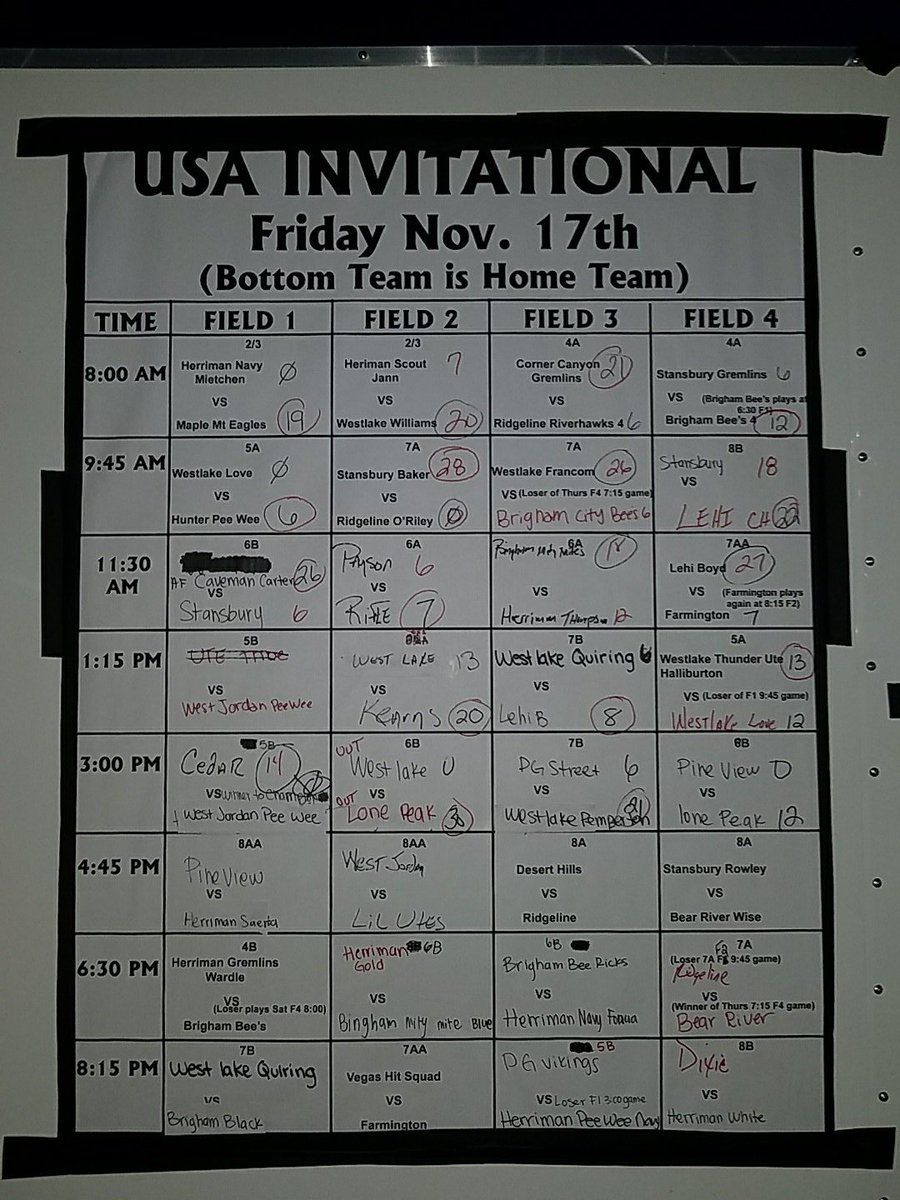 USA INVITATIONAL
Friday Nov. 17th
(Bottom Team is Home Team)
TIME FIELD 1 FIELD 2 FIELD 3 FIELD 4
8:00 AM
2/3
Herriman Navy
Mietchen 0
VS
Maple Mt Eagles 19
2/3
Heriman Scout 7
Jann
VS
Westlake Williams 20
4A
Corner Canyon 21
Gremlins
VS
Ridgeline Riverhawks 4 6
4A
Stansbury Gremlins 6
VS (Brigham Bee's plays at
6:30 F1)
Brigham Bee's 4 12
9:45 AM
5A
Westlake Love 0
VS
Hunter Pee Wee 6
7A
Stansbury Baker 28
VS
Ridgeline O'Riley 0
7A
Westlake Francom 26
VS (Loser of Thurs F4 7:15 game)
Brigham City Bees 6
8B
Stansbury 18
VS
LEHI CH 22
11:30
AM
6B
AF Caveman Carter 26
VS
Stansbury 6
6A
Payson 6
VS
Rifle 7
6A
VS
Herriman 12
7AA
Lehi Boyd 27
VS (Farmington plays
again at 8:15 F2)
Farmington 7
1:15 PM
5B
UTE Tribe
VS
West Jordan PeeWee
WEST LAKE 13
VS
Kearns 20
7B
Westlake Quiring 6
VS
Lehi B 8
5A
Westlake Thunder Ute 13
Halliburton
VS (Loser of F1 9:45 game)
Westlake Love 12
3:00 PM
5B
Cedar 14
VS Winner to
West Jordan Pee Wee
6B
OUT
West lake 0
VS
OUT
Lone Peak
7B
PG Street 6
VS
Westlake Pemberton 21
8B
Pine View 0
VS
lone Peak 12
4:45 PM
8AA
Pine View
VS
Herriman
8AA
West Jordan
VS
LiL Utes
8A
Desert Hills
VS
Ridgeline
8A
Stansbury Rowley
VS
Bear River Wise
6:30 PM
4B
Herriman Gremlins
Wardle
VS
(Loser plays Sat F4 8:00)
Brigham Bee's
Herriman 6B
Gold
VS
Bingham mity mite Blue
6B
Brigham Bee Ricks
VS
Herriman Navy
F2 7A
(Loser 7A 9:45 game)
Ridgeline
VS
(Winner of Thurs 7:15 F4 game)
Bear River
8:15 PM
7B
West lake Quiring
VS
Brigham Black
7AA
Vegas Hit Squad
VS
Farmington
5B
PG vikings
VS Loser F1 3:00 game
Herriman Pee Wee Navy
8B
Dixie
VS
Herriman White